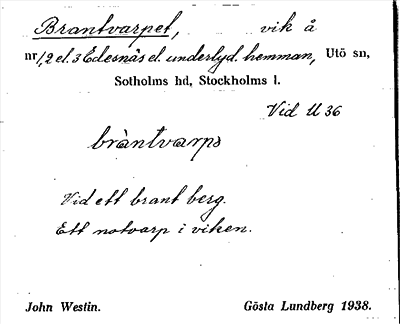 Brantvarpet, vik å
nr 1, 2 el. 3 Edesnäs el. underlyd. hemman, Utö sn,
Sotholms hd, Stockholms l.
Vid U 36
bràntvarpə
Vid ett brant berg.
Ett notvarp i viken.
John Westin. Gösta Lundberg 1938.